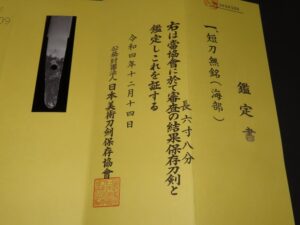 鑑定書
一、短刀 無銘(海部)
長六寸八分
右は當協會に於て審査の結果保存刀剣と
鑑定しこれを証する
令和四年十二月十四日
公益財團法人日本美術刀劍保存協會